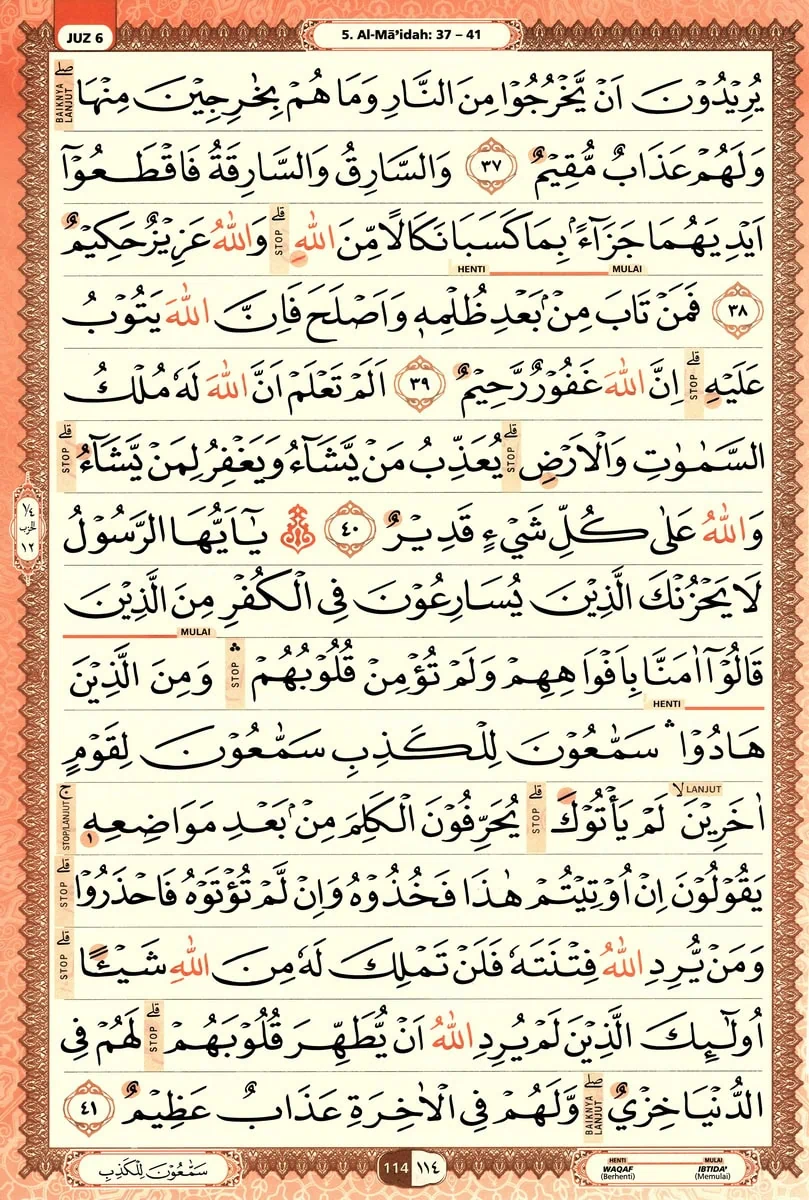 JUZ 6
5. Al-Mā'idah: 37 – 41
يُرِيْدُوْنَ اَنْ يَّخْرُجُوْا مِنَ النَّارِ وَمَا هُمْ بِخٰرِجِيْنَ مِنْهَا ۖ BAIKNYA LANJUT
وَلَهُمْ عَذَابٌ مُّقِيْمٌ ٣٧ وَالسَّارِقُ وَالسَّارِقَةُ فَاقْطَعُوْٓا
اَيْدِيَهُمَا جَزَاۤءًۢ بِمَا كَسَبَا نَكَالًا مِّنَ اللّٰهِ ۗ STOP وَاللّٰهُ عَزِيْزٌ حَكِيْمٌ
HENTI MULAI
٣٨ فَمَنْ تَابَ مِنْۢ بَعْدِ ظُلْمِهٖ وَاَصْلَحَ فَاِنَّ اللّٰهَ يَتُوْبُ
عَلَيْهِ ۗ STOP اِنَّ اللّٰهَ غَفُوْرٌ رَّحِيْمٌ ٣٩ اَلَمْ تَعْلَمْ اَنَّ اللّٰهَ لَهٗ مُلْكُ
السَّمٰوٰتِ وَالْاَرْضِ ۗ STOP يُعَذِّبُ مَنْ يَّشَاۤءُ وَيَغْفِرُ لِمَنْ يَّشَاۤءُ ۗ STOP
وَاللّٰهُ عَلٰى كُلِّ شَيْءٍ قَدِيْرٌ ٤٠ يٰٓاَيُّهَا الرَّسُوْلُ
١/٤ الحزب ١٢
لَا يَحْزُنْكَ الَّذِيْنَ يُسَارِعُوْنَ فِى الْكُفْرِ مِنَ الَّذِيْنَ
MULAI
قَالُوْٓا اٰمَنَّا بِاَفْوَاهِهِمْ وَلَمْ تُؤْمِنْ قُلُوْبُهُمْ ۛ STOP وَمِنَ الَّذِيْنَ
HENTI
هَادُوْا ۛ سَمّٰعُوْنَ لِلْكَذِبِ سَمّٰعُوْنَ لِقَوْمٍ
اٰخَرِيْنَ ۙ LANJUT لَمْ يَأْتُوْكَ ۗ STOP يُحَرِّفُوْنَ الْكَلِمَ مِنْۢ بَعْدِ مَوَاضِعِهٖ ۚ STOP/LANJUT ١
يَقُوْلُوْنَ اِنْ اُوْتِيْتُمْ هٰذَا فَخُذُوْهُ وَاِنْ لَّمْ تُؤْتَوْهُ فَاحْذَرُوْا ۗ STOP
وَمَنْ يُّرِدِ اللّٰهُ فِتْنَتَهٗ فَلَنْ تَمْلِكَ لَهٗ مِنَ اللّٰهِ شَيْـًٔا ۗ STOP
اُولٰۤىِٕكَ الَّذِيْنَ لَمْ يُرِدِ اللّٰهُ اَنْ يُّطَهِّرَ قُلُوْبَهُمْ ۗ STOP لَهُمْ فِى
الدُّنْيَا خِزْيٌ ۖ BAIKNYA LANJUT وَّلَهُمْ فِى الْاٰخِرَةِ عَذَابٌ عَظِيْمٌ ٤١
سَمّٰعُوْنَ لِلْكَذِبِ
114 ١١٤
HENTI MULAI
WAQAF IBTIDA'
(Berhenti) (Memulai)